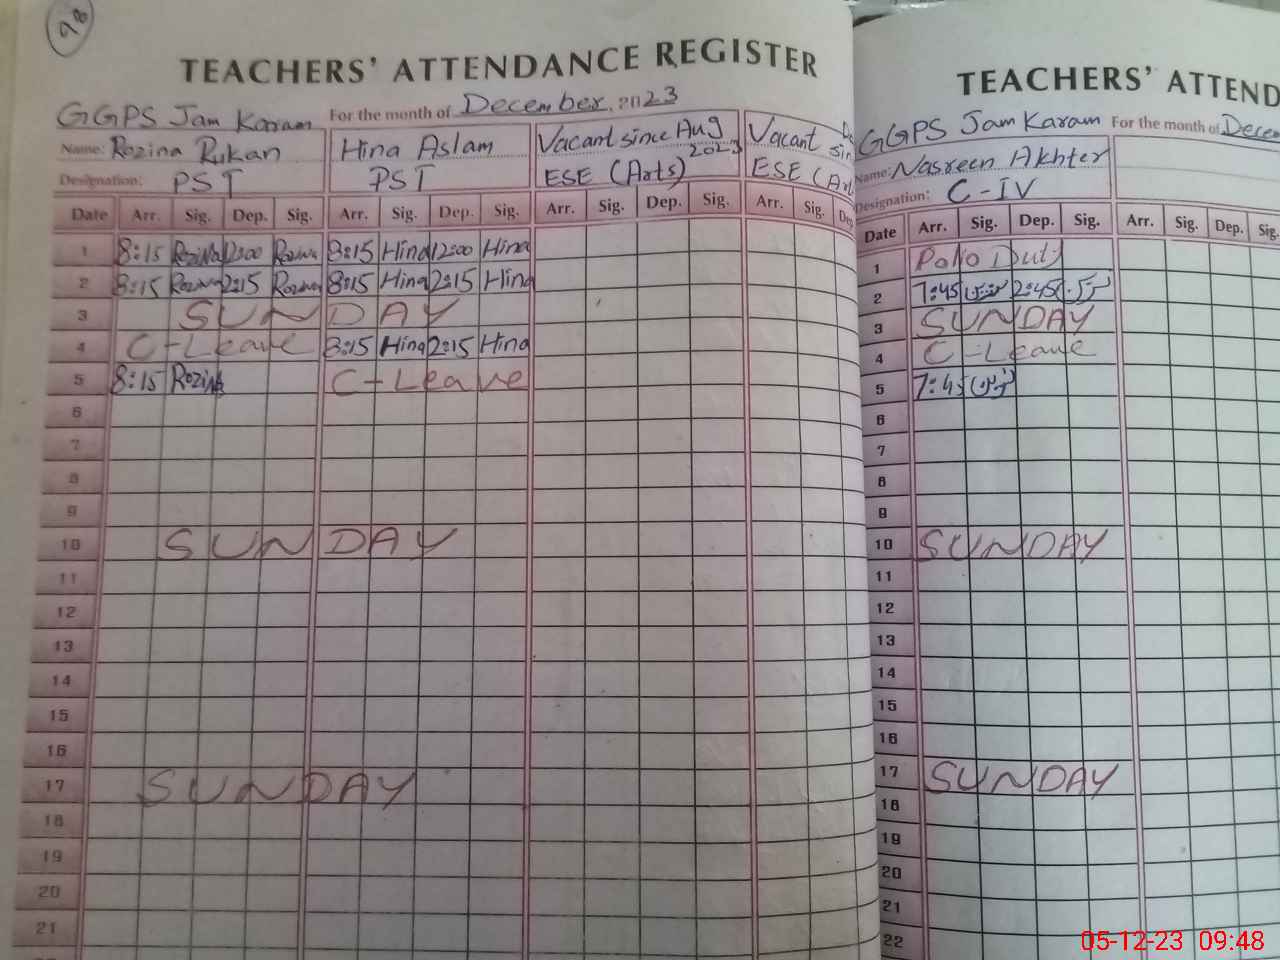 98
TEACHERS' ATTENDANCE REGISTER
GGPS Jam Karam For the month of December, 2023
Name: Rozina Rukan Hina Aslam Vacant since Aug 2023 Vacant sin
Designation: PST PST ESE (Arts) ESE (Art
Date Arr. Sig. Dep. Sig. Arr. Sig. Dep. Sig. Arr. Sig. Dep. Sig. Arr. Sig. Dep
1 8:15 Rozina 12:00 Rozina 8:15 Hina 12:00 Hina
2 8:15 Rozina 2:15 Rozina 8:15 Hina 2:15 Hina
3 SUNDAY
4 C-Leave 8:15 Hina 2:15 Hina
5 8:15 Rozina C-Leave
6
7
8
9
10 SUNDAY
11
12
13
14
15
16
17 SUNDAY
18
19
20
21
TEACHERS' ATTEND
GGPS Jam Karam For the month of Decem
Name: Nasreen Akhter
Designation: C-IV
Date Arr. Sig. Dep. Sig. Arr. Sig. Dep. Sig.
1 Polio Duty
2 7:45 نسرین 2:45 نسرین
3 SUNDAY
4 C-Leave
5 7:45 نسرین
6
7
8
9
10 SUNDAY
11
12
13
14
15
16
17 SUNDAY
18
19
20
21
22
05-12-23 09:48